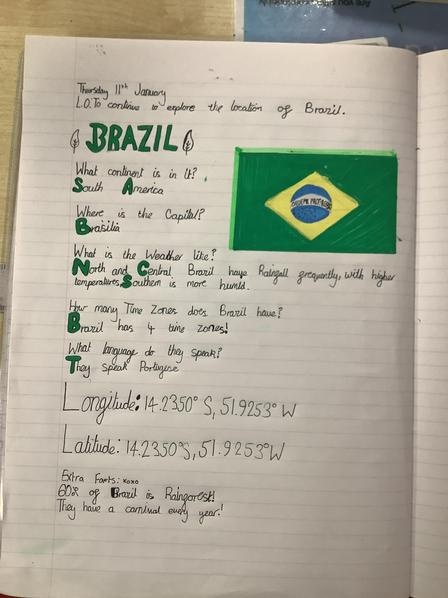 Thursday 11th January
L.O.To continue to explore the location of Brazil.
BRAZIL
What continent is in It?
South America
Where is the Capital?
Brasilia
What is the Weather like?
North and Central Brazil have Raingall grequently, with higher
temperatures, Southern is more humid.
How many Time Zones does Brazil have?
Brazil has 4 time zones!
What language do they speak?
They speak Portugise
Longitude: 14.2350° S, 51.9253° W
Latitude: 14.2350°S, 51.9253°W
Extra Facts: xoxo
60% of Brazil is Raingorest!
They have a carnival every year!